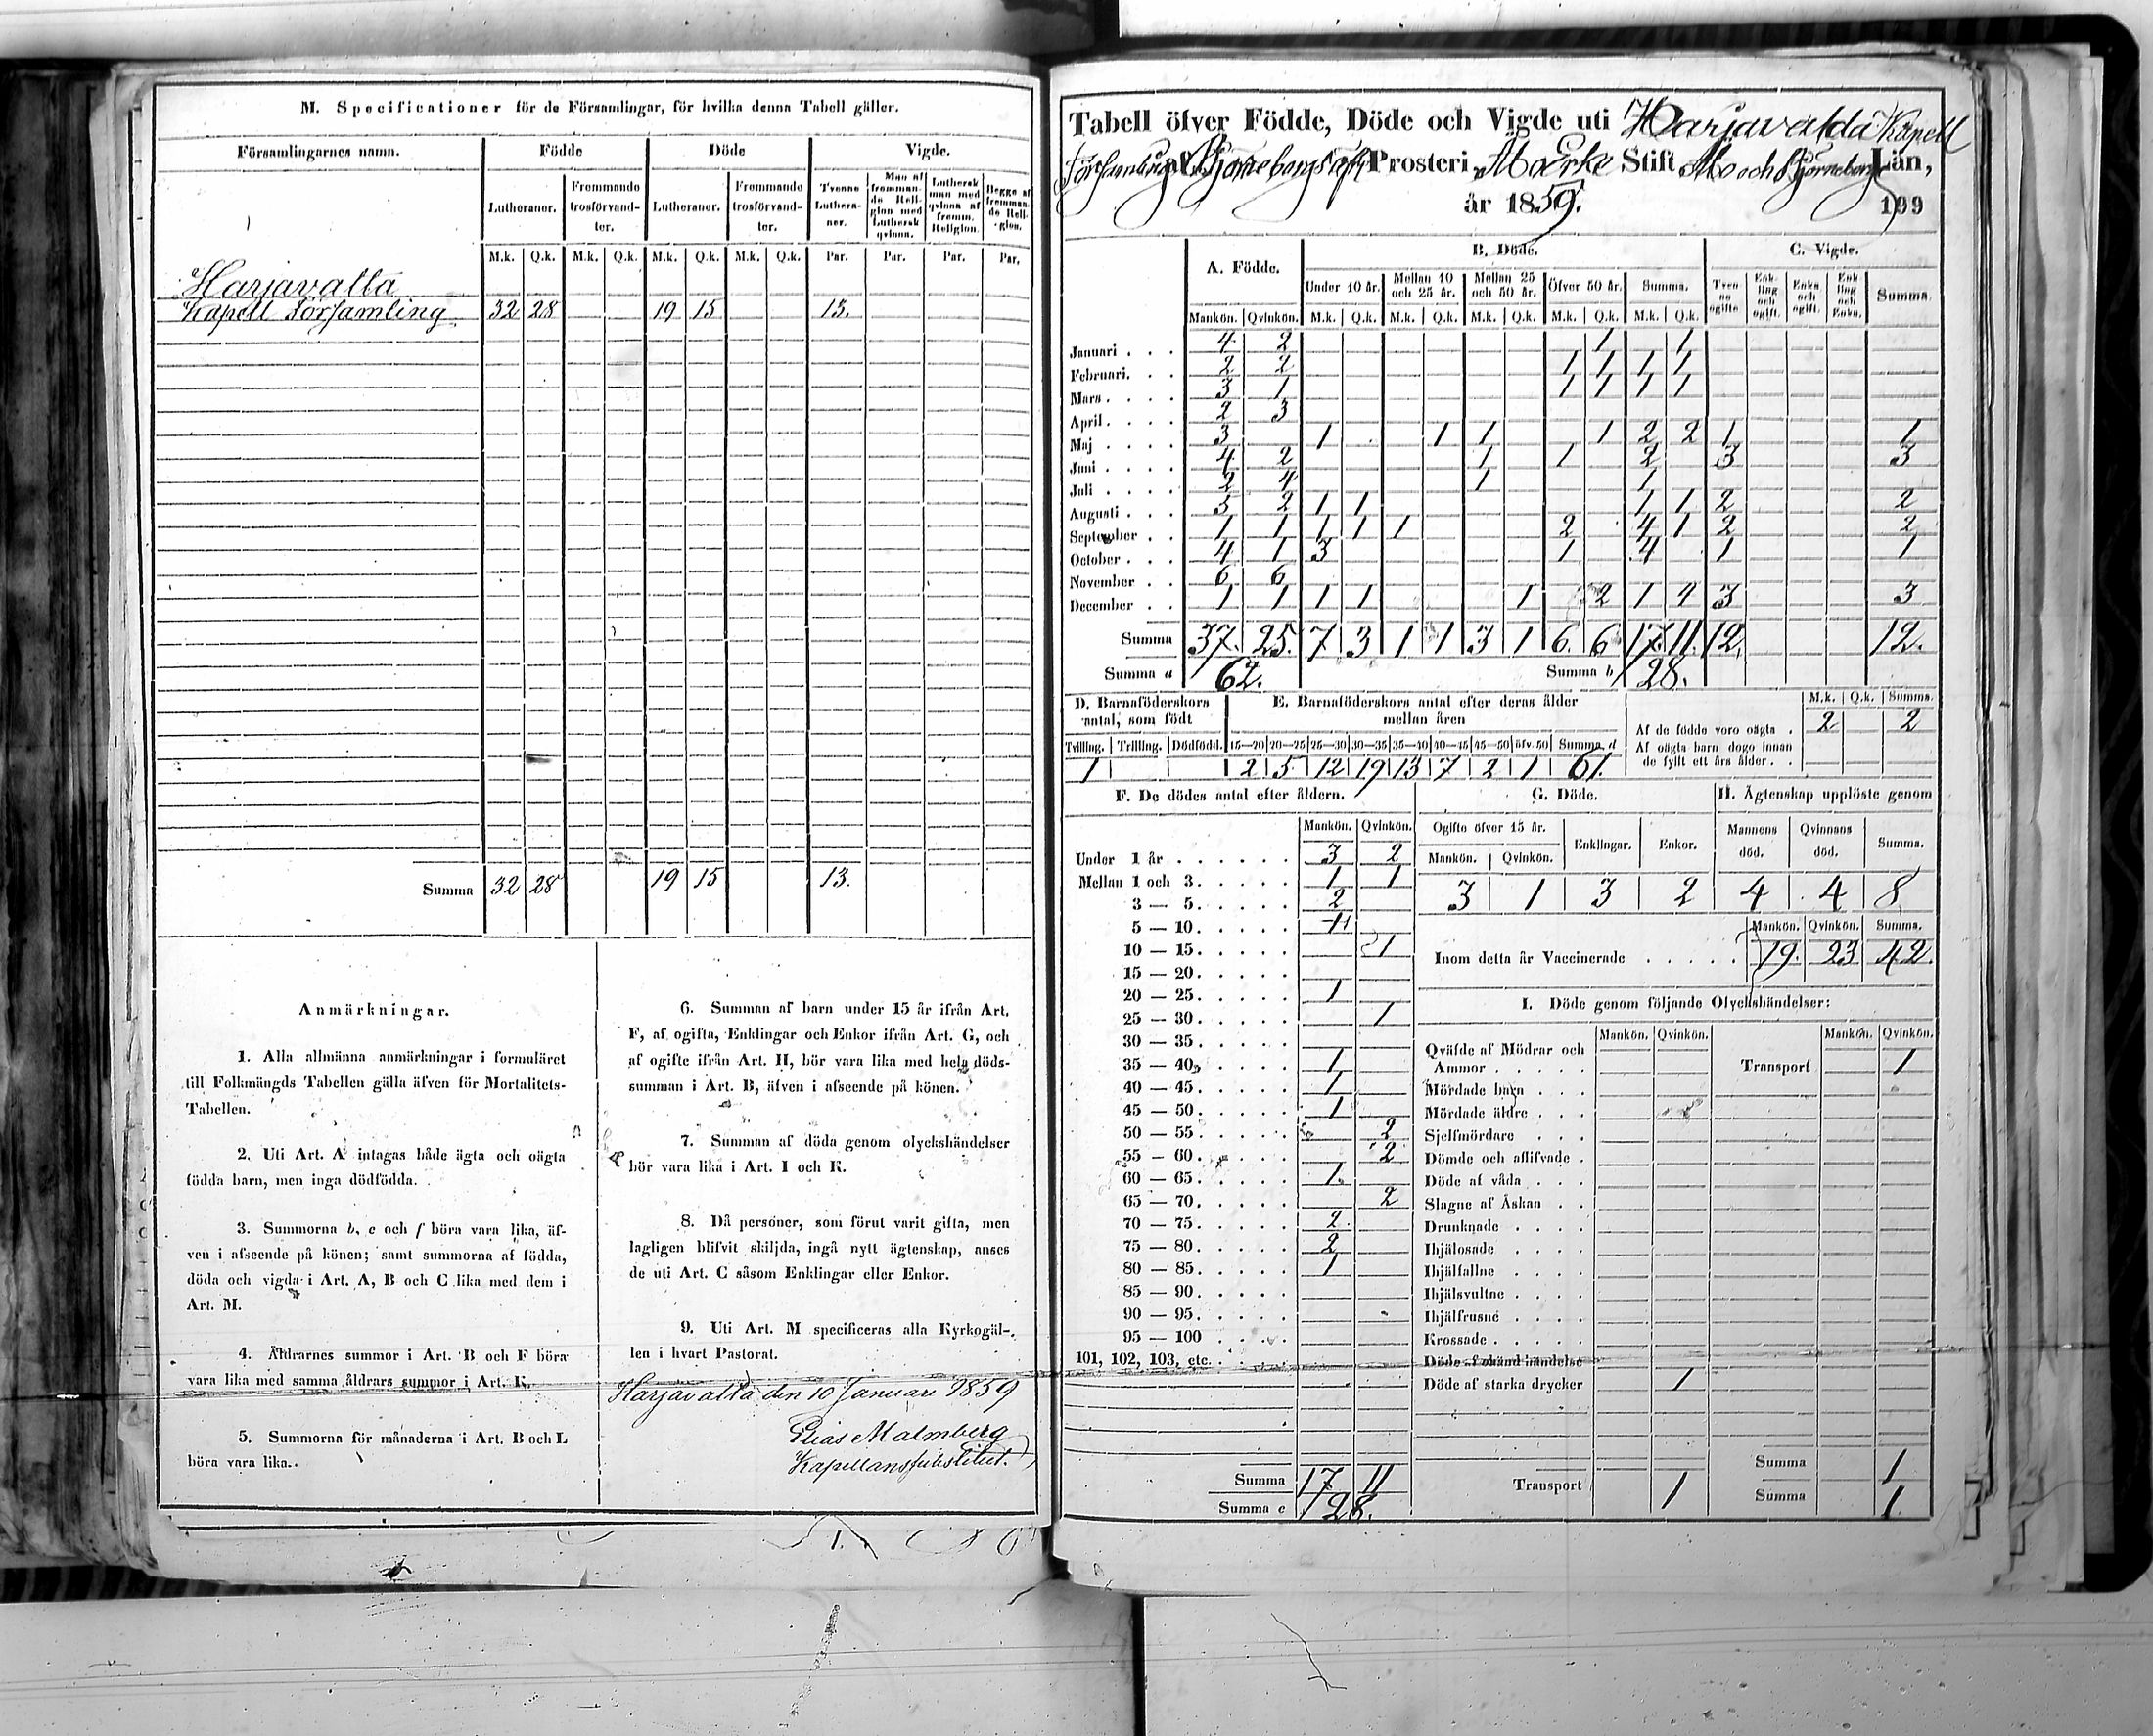 M. Specificationer för de Församlingar, för hvilka denna Tabell gäller.
Församlingarnes namn. Födde Döde Vigde.
Lutheraner. Fremmande trosförvandter. Lutheraner. Fremmande trosförvandter. Tvenne Lutheraner. Man af fremmande Religion med Luthersk qvinna. Luthersk man med qvinna af fremm. Religion. Begge af fremmande Religion.
M.k. Q.k. M.k. Q.k. M.k. Q.k. M.k. Q.k. Par. Par. Par. Par.
Harjavalta
Kapell Församling 32 28 19 15 13.
Summa 32 28 19 15 13.
Anmärkningar.
1. Alla allmänna anmärkningar i formuläret
till Folkmängds Tabellen gälla äfven för Mortalitets-
Tabellen.
2. Uti Art. A intagas både ägta och oägta
födda barn, men inga dödfödda.
3. Summorna b, c och f böra vara lika, äf-
ven i afseende på könen; samt summorna af födda,
döda och vigda i Art. A, B och C lika med dem i
Art. M.
4. Åldrarnes summor i Art. B och F böra
vara lika med samma åldrars summor i Art. K.
5. Summorna för månaderna i Art. B och L
böra vara lika.
6. Summan af barn under 15 år ifrån Art.
F, af ogifta, Enklingar och Enkor ifrån Art. G, och
af ogifte ifrån Art. H, bör vara lika med hela döds-
summan i Art. B, äfven i afseende på könen.
7. Summan af döda genom olyckshändelser
bör vara lika i Art. I och K.
8. Då personer, som förut varit gifta, men
lagligen blifvit skiljda, ingå nytt ägtenskap, anses
de uti Art. C såsom Enklingar eller Enkor.
9. Uti Art. M specificeras alla Kyrkogäl-
len i hvart Pastorat.
Harjavalta den 10 Januari 1859
Elias Malmberg
Kapellanssubstitut.
Tabell öfver Födde, Döde och Vigde uti Harjavalda Kapell
Församling af Björneborgs Prosteri Åbo Erke Stift Åbo och Björneborgs Län,
år 1859.
199
A. Födde. B. Döde. C. Vigde.
Under 10 år. Mellan 10 och 25 år. Mellan 25 och 50 år. Öfver 50 år. Summa. Tvenne ogifte Enkling och ogift. Enka och ogift. Enkling och Enka. Summa.
Mankön. Qvinkön. M.k. Q.k. M.k. Q.k. M.k. Q.k. M.k. Q.k. M.k. Q.k.
Januari 4 2 1 1
Februari 2 2 1 1 1 1
Mars 3 1 1 1 1 1
April 2 3
Maj 3 1 1 1 1 2 2 1 1
Juni 4 2 1 1 2 3 3
Juli 2 4 1 1
Augusti 5 2 1 1 1 1 2 2
September 1 1 1 1 1 2 4 1 2 2
October 4 1 3 1 4 1 1
November 6 6
December 1 1 1 1 1 2 1 4 3 3
Summa 37. 25. 7 3 1 1 3 1 6. 6 17. 11. 12. 12.
Summa a 62. Summa b 28.
D. Barnaföderskors antal, som födt
E. Barnaföderskors antal efter deras ålder mellan åren
Tvilling. Trilling. Dödfödd. 15—20 20—25 25—30 30—35 35—40 40—45 45—50 öfv. 50 Summa d
1 2 5 12 19 13 7 2 1 61.
M.k. Q.k. Summa.
Af de födde voro oägta . 2 2
Af oägta barn dogo innan
de fyllt ett års ålder . .
F. De dödes antal efter åldern.
Mankön. Qvinkön.
Under 1 år 3 2
Mellan 1 och 3. 1 1
3 — 5. 2
5 — 10. 1
10 — 15. 1
15 — 20.
20 — 25. 1
25 — 30. 1
30 — 35.
35 — 40. 1
40 — 45. 1
45 — 50. 1
50 — 55. 2
55 — 60. 2
60 — 65. 1.
65 — 70. 2
70 — 75. 2.
75 — 80. 2
80 — 85. 1
85 — 90.
90 — 95.
95 — 100
101, 102, 103, etc.
Summa 17 11
Summa c 28.
G. Döde.
Ogifte öfver 15 år. Enklingar. Enkor.
Mankön. Qvinkön.
3 1 3 2
H. Ägtenskap upplöste genom
Mannens död. Qvinnans död. Summa.
4 4 8
Mankön. Qvinkön. Summa.
Inom detta år Vaccinerade 19. 23 42.
I. Döde genom följande Olyckshändelser:
Mankön. Qvinkön. Mankön. Qvinkön.
Qväfde af Mödrar och
Ammor
Transport 1
Mördade barn
Mördade äldre
Sjelfmördare
Dömde och aflifvade
Döde af våda
Slagne af Åskan
Drunknade
Ihjälosade
Ihjälfallne
Ihjälsvultne
Ihjälfrusne
Krossade
Döde af okänd händelse
Döde af starka drycker 1
Summa 1
Transport 1
Summa 1.